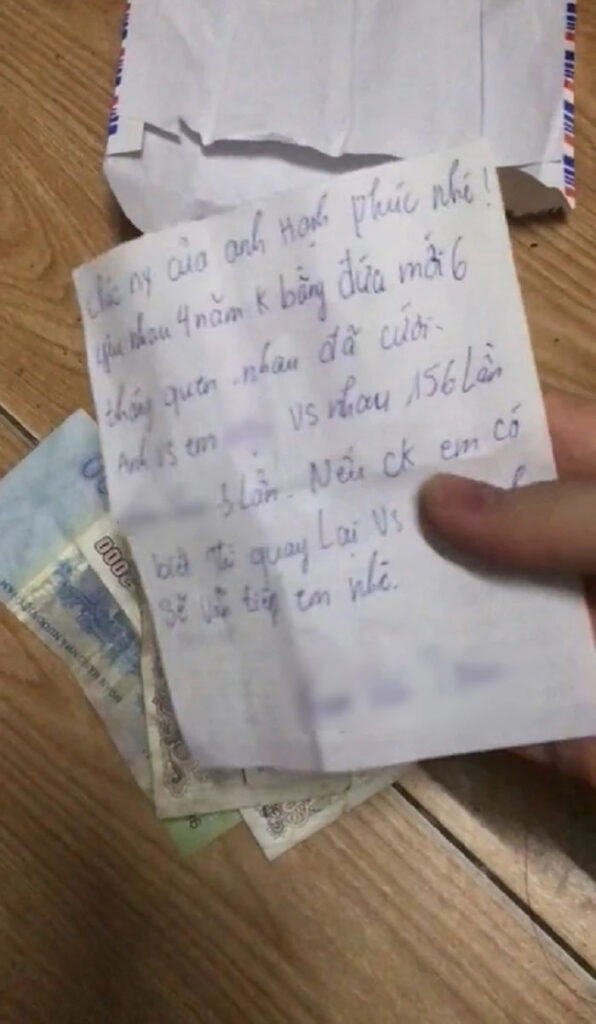 Chúc ny của anh Hạnh phúc nhé!
yêu nhau 4 năm k bằng đứa mới 6
tháng quen nhau đã cưới.
Anh vs em vs nhau 156 lần
3 lần. Nếu ck em có
biết thì quay lại vs
sẽ vẫn tiếp em nhé.
2000